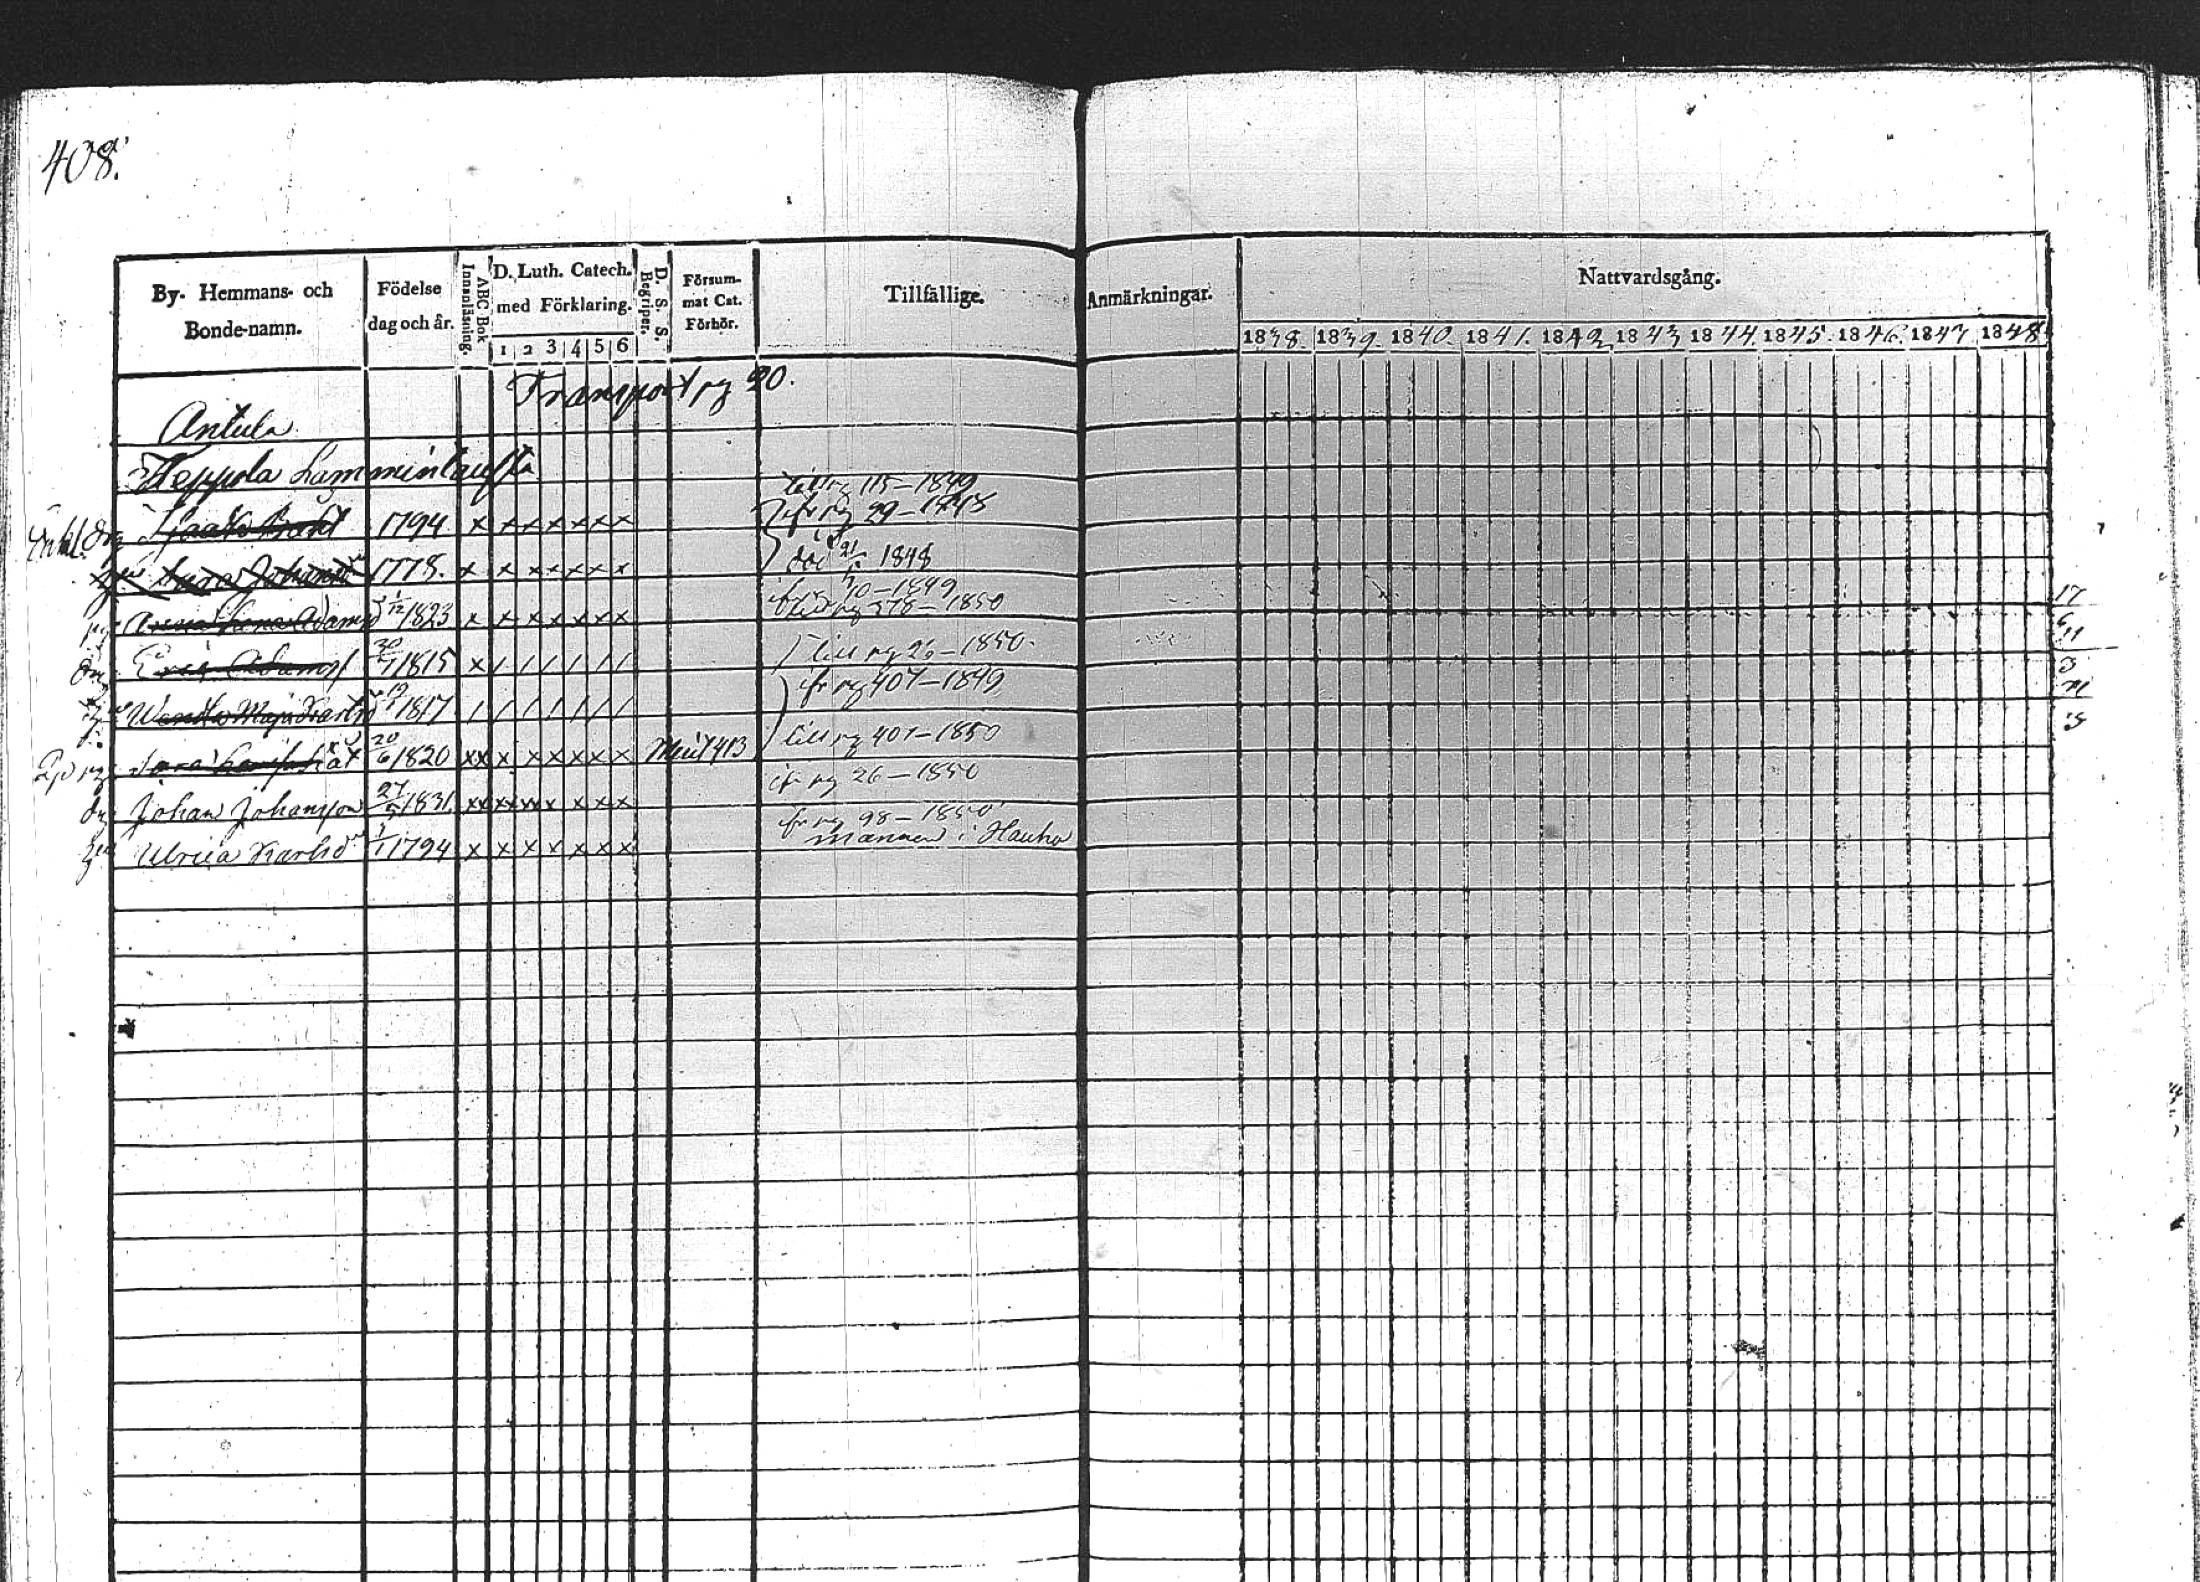 408.
By- Hemmans- och Bonde-namn.
Födelse dag och år.
ABC Bok Innanläsning.
D. Luth. Catech. med Förklaring.
1 2 3 4 5 6
D. S. S. Begriper.
Försum- mat Cat. Förhör.
Tillfällige.
Anmärkningar.
Nattvardsgång.
1838. 1839. 1840. 1841. 1842 1843 1844. 1845. 1846. 1847 1848
Transport pg 20.
Antula
Heppola
till pg 115-1849
1794 x x x x x x x
ifr pg 29-1848
1778. x x x x x x x
död 21 1848
Anna Lena Adamsd 1/12 1823 x x x x x x x
till pg 378-1850
Eric Adamss 1815 x / / / / / /
till pg 26-1850.
Wendla Maja Karlsd 1817 / / / / / / /
ifr pg 407-1849
20/6 1820 xx x x x x x x 413
till pg 407-1850
Johan Johansson 27 1831. xx xx xx x x x x
ifr pg 26-1850
Ulrica Karlsdr 1794 x x x x x x x
ifr pg 98-1850
mannen i Hauho